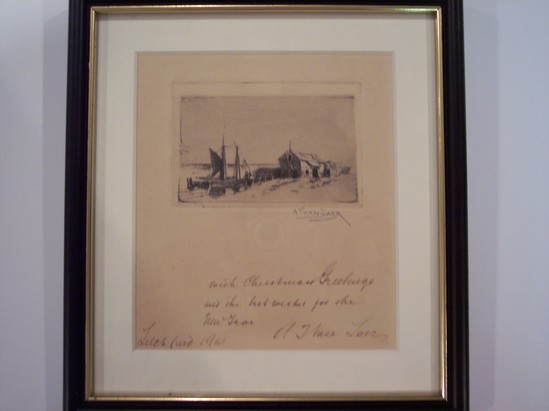 A T VAN LAER
with Christmas Greetings
and the best wishes for the
New Year
A T Van Laer